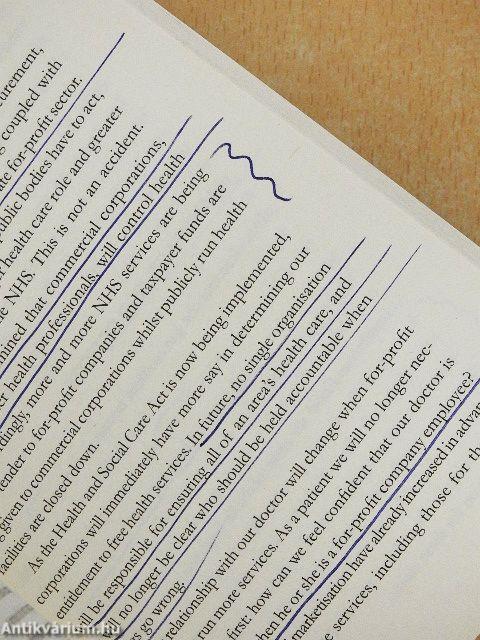 curement,
g coupled with
ate for-profit sector.
public bodies have to act,
r health care role and greater
e NHS. This is not an accident.
mined that commercial corporations,
er health professionals, will control health
dingly, more and more NHS services are being
ender to for-profit companies and taxpayer funds are
g given to commercial corporations whilst publicly run health
facilities are closed down.
As the Health and Social Care Act is now being implemented,
corporations will immediately have more say in determining our
entitlement to free health services. In future, no single organisation
ll be responsible for ensuring all of an area's health care, and
no longer be clear who should be held accountable when
s go wrong.
relationship with our doctor will change when for-profit
run more services. As a patient we will no longer nec-
first: how can we feel confident that our doctor is
hen he or she is a for-profit company employee?
marketisation have already increased in advan
e services, including those for th
Antikvárium.hu